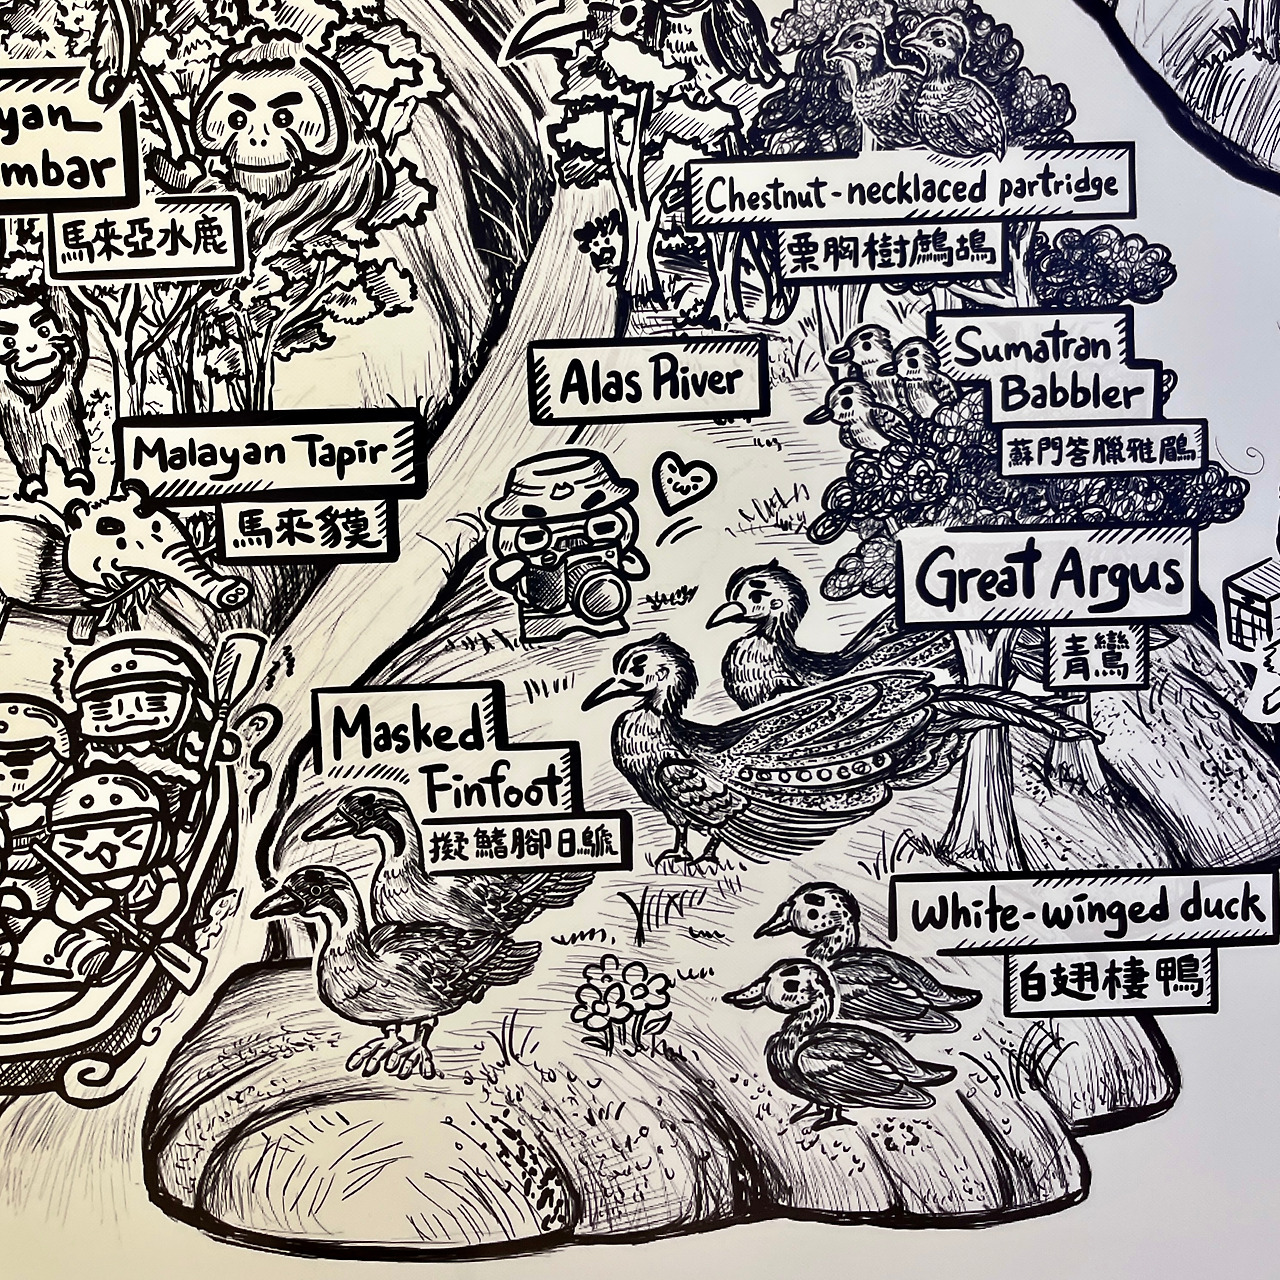 yan
mbar
馬來亞水鹿
Chestnut-necklaced partridge
栗胸樹鷓鴣
Sumatran
Babbler
蘇門答臘雅鶥
Alas River
Malayan Tapir
馬來貘
Great Argus
青鸞
Masked
Finfoot
擬鰭腳日鷈
White-winged duck
白翅棲鴨